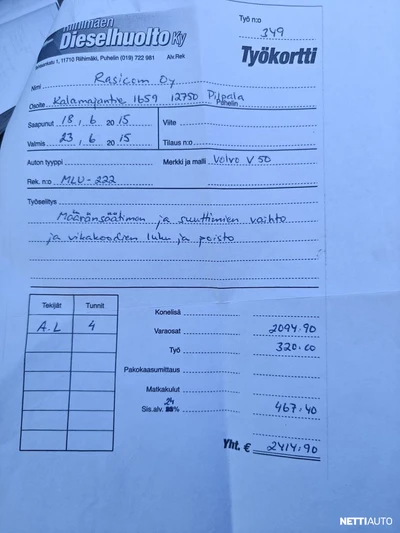 Riihimäen
Dieselhuolto Ky
11710 Riihimäki, Puhelin (019) 722 981 Alv.Rek
Työ n:o
349
Työkortti
Nimi Rasicom Oy
Osoite Kalamajantie 1659 12750 Pilpala Puhelin
Saapunut 18. 6 2015 Viite
Valmis 23. 6 2015 Tilaus n:o
Auton tyyppi Merkki ja malli Volvo V50
Rek. n:o MLU-222
Työselitys
Määränsäätimen ja suuttimien vaihto
ja vikakoodien luku ja poisto
Tekijät Tunnit
A.L 4
Konelisä
Varaosat 2094.90
Työ 320.00
Pakokaasumittaus
Matkakulut
24
Sis.alv. % 467.40
Yht. € 2414.90
NETTIAUTO